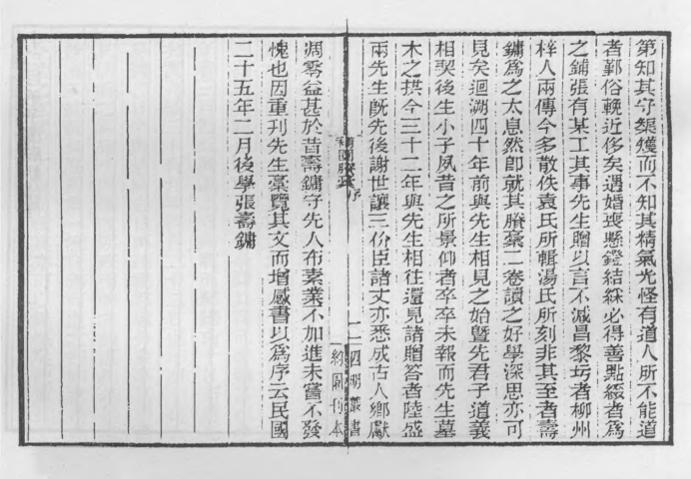 第知其守榘矱而不知其精氣光怪有道人所不能道
者鄞俗輓近侈矣遇婚喪懸鐙結綵必得善點綴者為
之鋪張有某工其事先生贈以言不減昌黎圬者柳州
梓人兩傳今多散佚袁氏所輯湯氏所刻非其至者壽
鏞為之太息然卽就其賸稾二卷讀之好學深思亦可
見矣迴溯四十年前與先生相見之始暨先君子道義
相契後生小子夙昔之所景仰者卒卒未報而先生墓
木之拱今三十二年與先生相往還見諸贈答者陸盛
兩先生旣先後謝世讓三份臣諸丈亦悉成古人鄉獻
序
二
四明叢書
約園刊本
凋零益甚於昔壽鏞守先人布素業不加進未嘗不發
愧也因重刊先生稾覽其文而增感書以為序云民國
二十五年二月後學張壽鏞